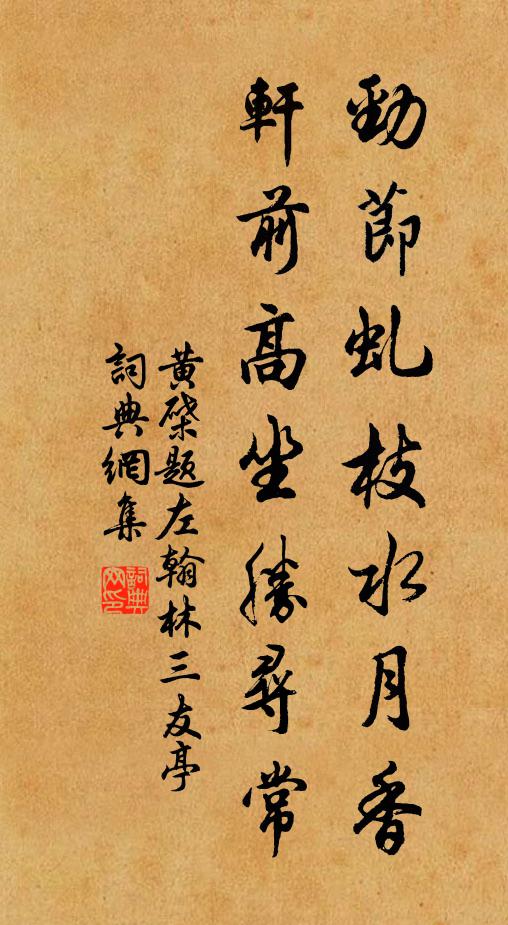 勁節虬枝水月香
軒前高坐勝尋常
黃棨題左翰林三友亭
詞典網集
詞典網印